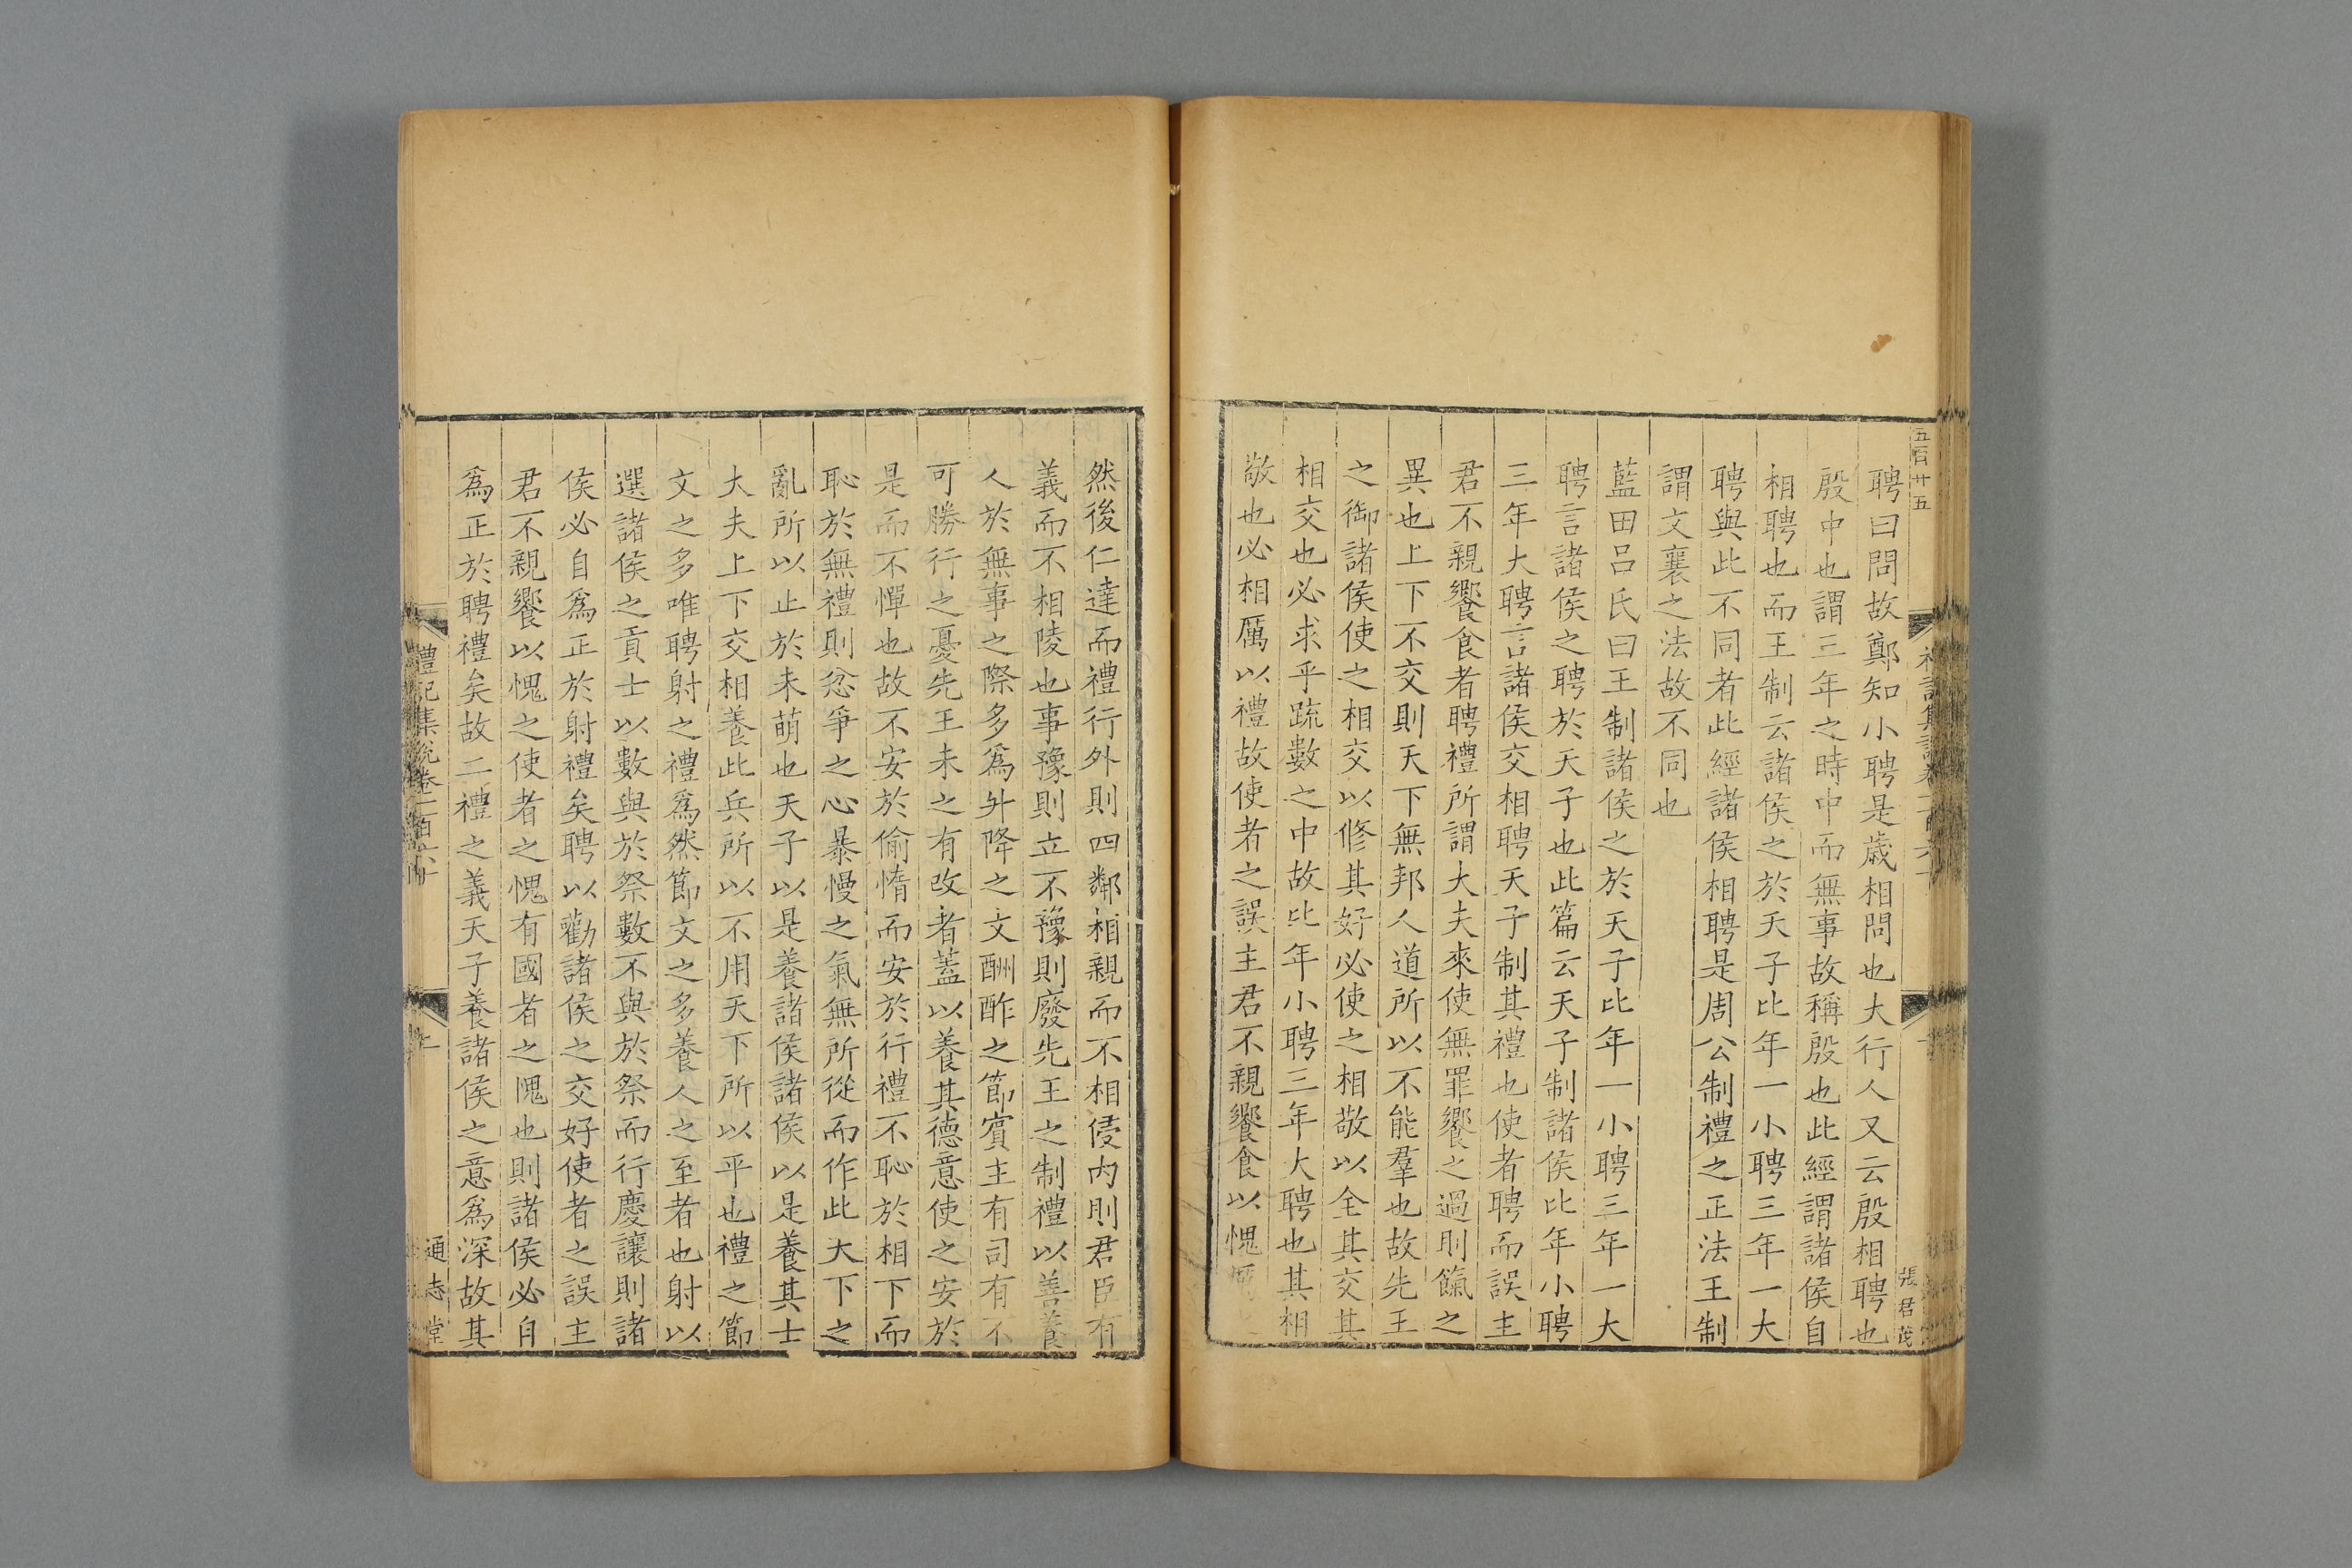 五百廿五
聘曰問故鄭知小聘是歲相問也大行人又云殷相聘也
殷中也謂三年之時中而無事故稱殷也此經謂諸侯自
相聘也而王制云諸侯之於天子比年一小聘三年一大
聘與此不同者此經諸侯相聘是周公制禮之正法王制
謂文襄之法故不同也
藍田呂氏曰王制諸侯之於天子比年一小聘三年一大
聘言諸侯之聘於天子也此篇云天子制諸侯比年小聘
三年大聘言諸侯交相聘天子制其禮也使者聘而誤主
君不親饗食者聘禮所謂大夫來使無罪饗之過則餼之
異也上下不交則天下無邦人道所以不能羣也故先王
之御諸侯使之相交以修其好必使之相敬以全其交其
相交也必求乎疏數之中故比年小聘三年大聘也其相
敬也必相厲以禮故使者之誤主君不親饗食以愧
張君茂
然後仁達而禮行外則四鄰相親而不相侵內則君臣有
義而不相陵也事豫則立不豫則廢先王之制禮以善養
人於無事之際多爲升降之文酬酢之節賓主有司有不
可勝行之憂先王未之有改者蓋以養其德意使之安於
是而不憚也故不安於偷惰而安於行禮不恥於相下而
恥於無禮則忿爭之心暴慢之氣無所從而作此天下之
亂所以止於未萌也天子以是養諸侯諸侯以是養其士
大夫上下交相養此兵所以不用天下所以平也禮之節
文之多唯聘射之禮爲然節文之多養人之至者也射以
選諸侯之貢士以數與於祭數不與於祭而行慶讓則諸
侯必自爲正於射禮矣聘以勸諸侯之交好使者之誤主
君不親饗以愧之使者之愧有國者之愧也則諸侯必自
爲正於聘禮矣故二禮之義天子養諸侯之意爲深故其
禮記集說卷一百六十
通志堂